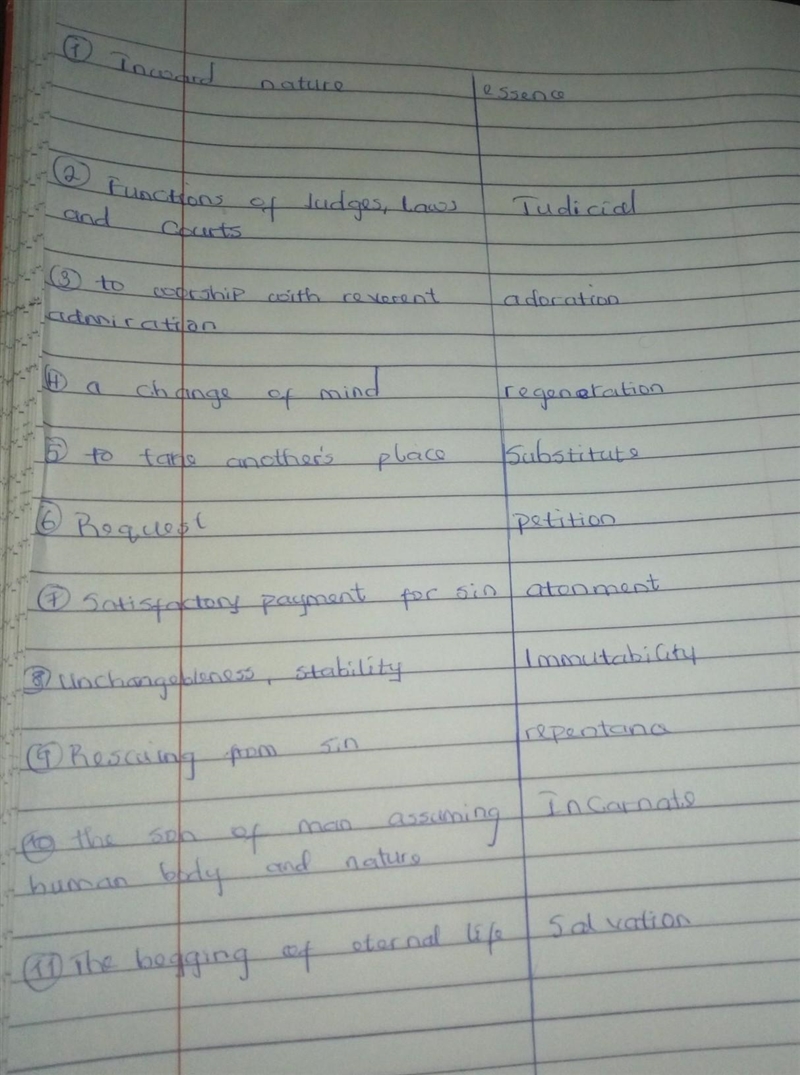 ① Inward nature essence
② Functions of Judges, Laws Judicial
and Courts
③ to worship with reverent adoration
admiration
④ a change of mind regeneration
⑤ to take another's place Substitute
⑥ Request petition
⑦ Satisfactory payment for sin atonment
⑧ Unchangebleness, stability Immutability
⑨ Rescuing from sin repentanc
⑩ the son of man assuming InCarnate
human body and nature
⑪ The begging of eternal life Salvation